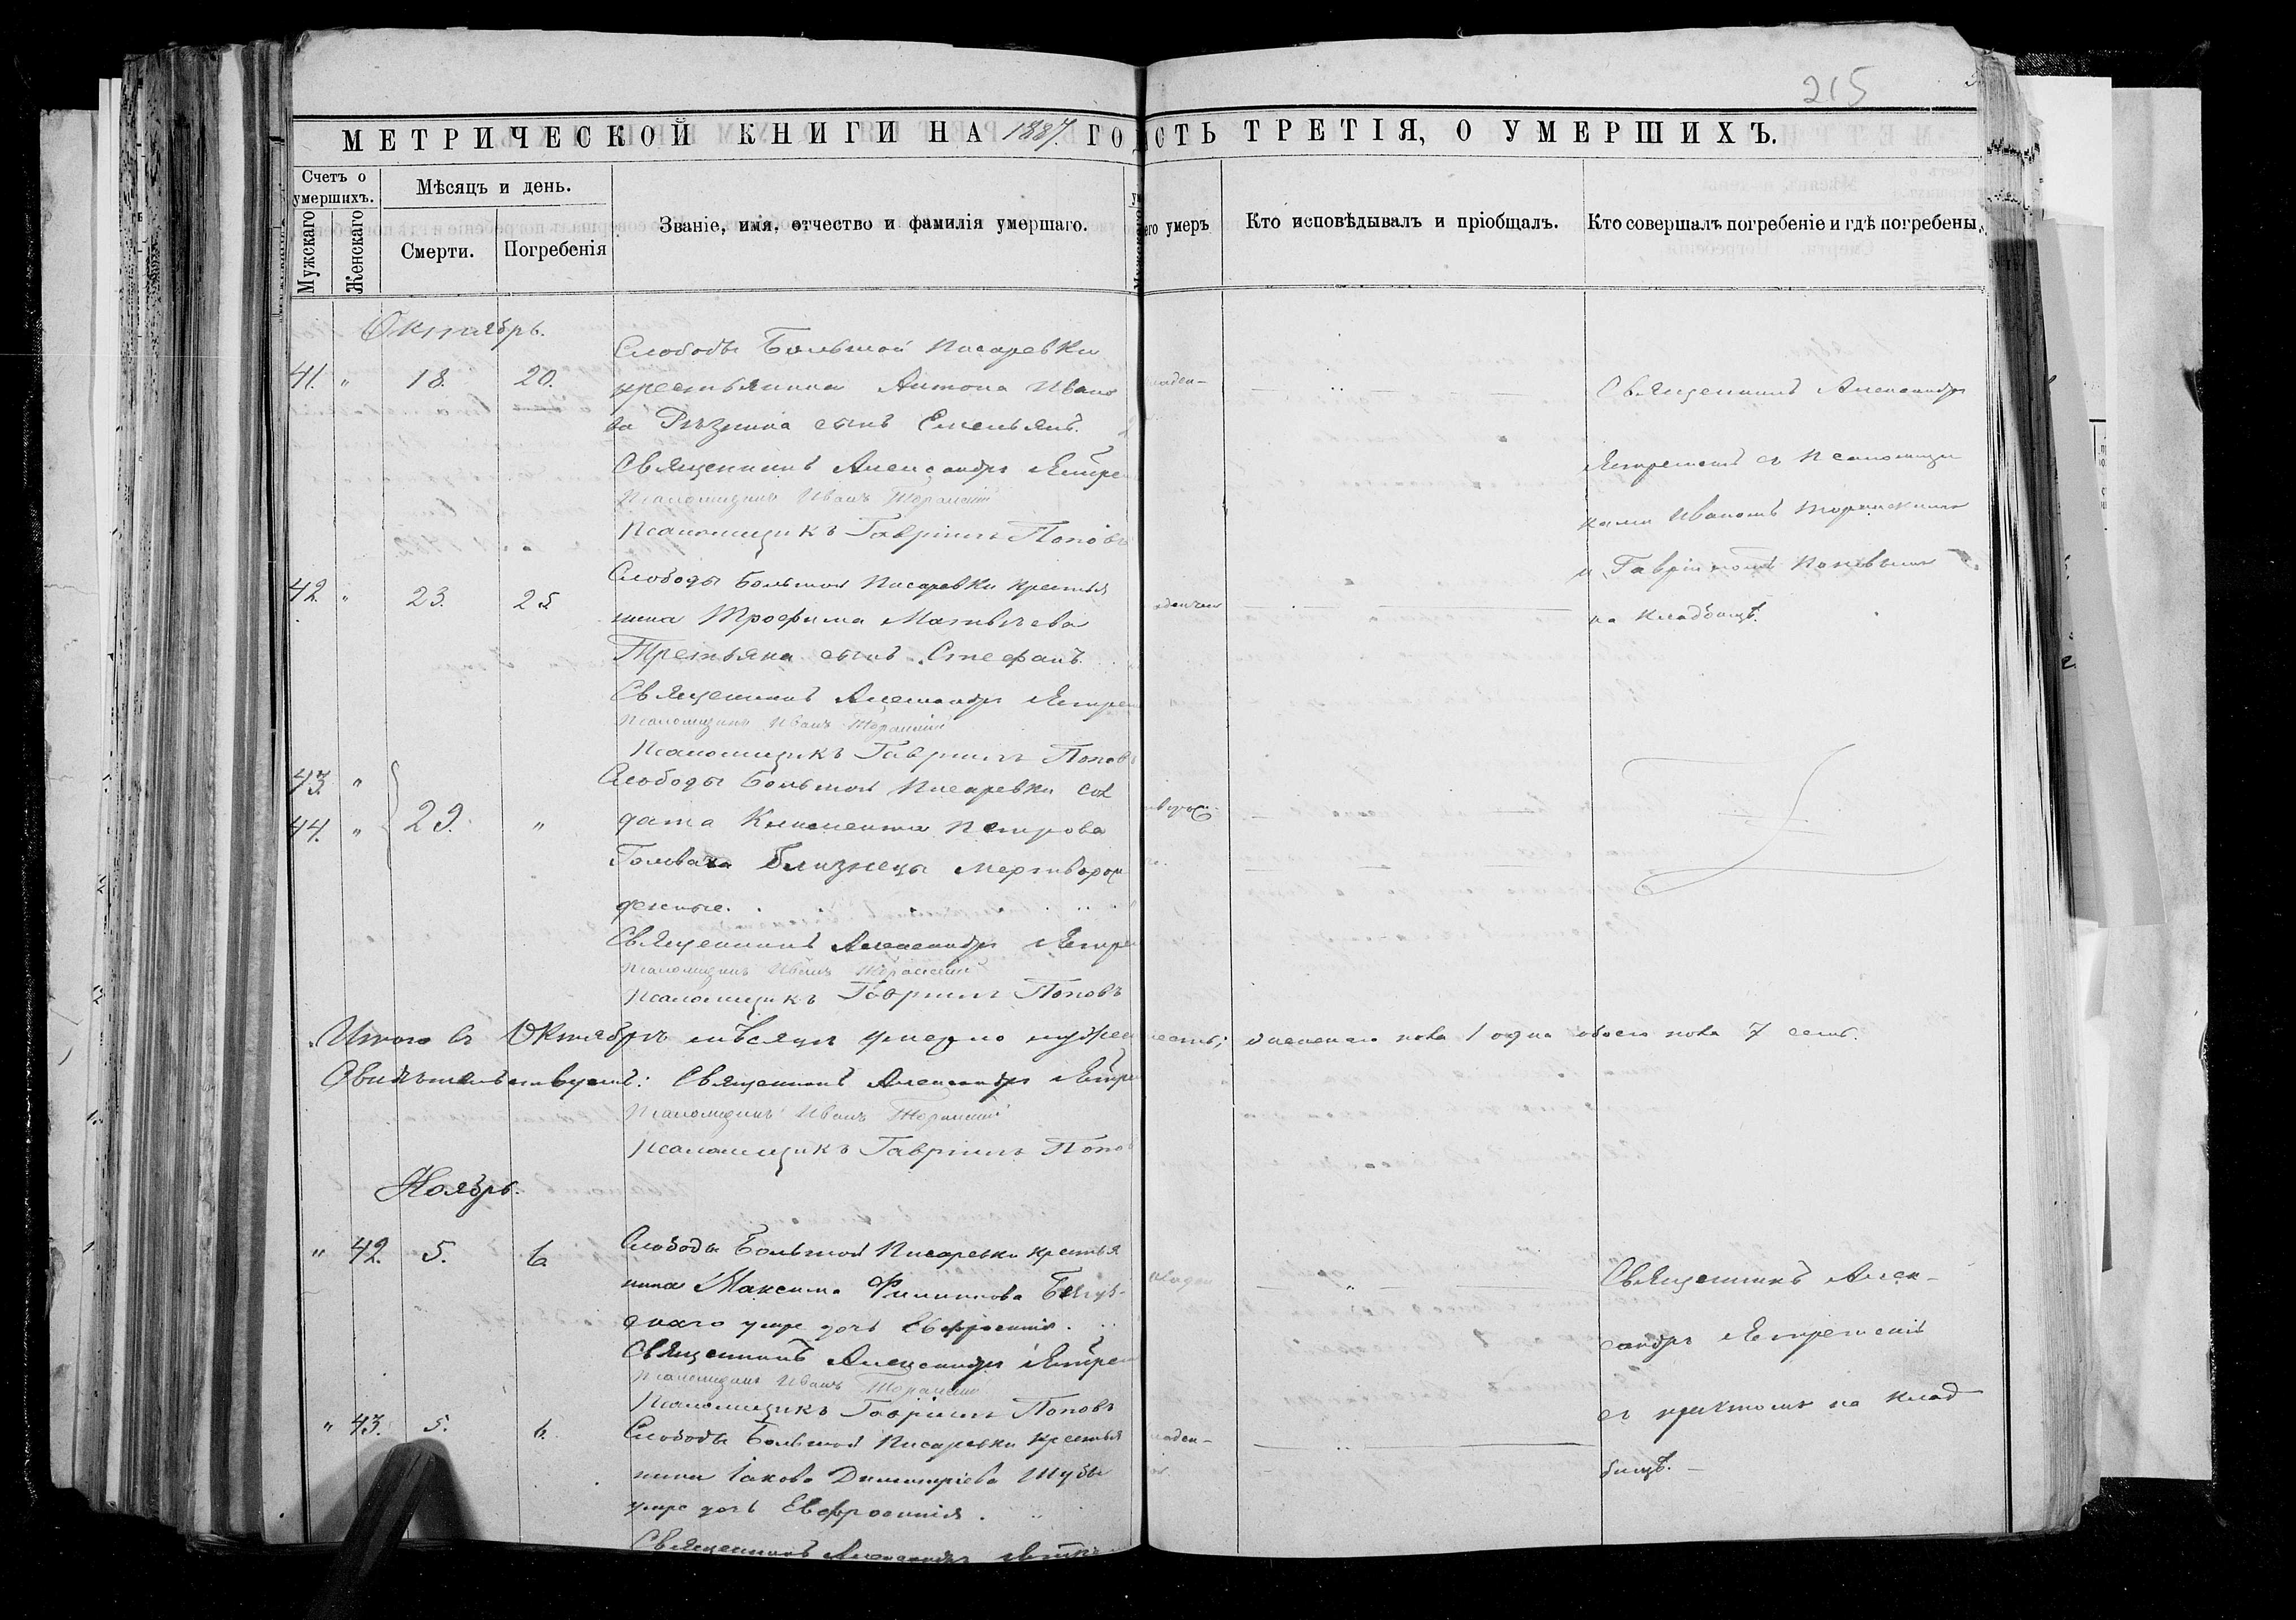 215
МЕТРИЧЕСКОЙ КНИГИ НА 1887 ГО
СТЬ ТРЕТІЯ, О УМЕРШИХЪ.
Счетъ о умершихъ.
Мужскаго
Женскаго
Мѣсяцъ и день.
Смерти.
Погребенія
Званіе, имя, отчество и фамилія умершаго.
его умеръ
Кто исповѣдывалъ и пріобщалъ.
Кто совершалъ погребеніе и гдѣ погребены.
Октябрь.
41. " 18. 20.
Слободы Большой Писаревки
крестьянина Антона Ивано
ва Рѣзника сынъ Емельянъ.
Священникъ Александръ Ястре
Псаломщикъ Иванъ
Псаломщикъ Гавріилъ Поповъ
Священникъ Александръ
с Псаломщи
ками Иваномъ
и Гавріиломъ Поповымъ
на кладбищѣ.
42. " 23. 25
Слободы Большой Писаревки крестья
нина Трофима Матвѣева
Третьяка сынъ Стефанъ.
Священникъ Александръ Ястре
Псаломщикъ Иванъ
Псаломщикъ Гавріилъ Поповъ
43. "
44. " 29. "
Слободы Большой Писаревки сол
дата Климента Петрова
близнецы мертворож
денные.
Священникъ Александръ Ястре
Псаломщикъ Иванъ
Псаломщикъ Гавріилъ Поповъ
Итого въ Октябрѣ мѣсяцѣ умерло мужес шесть; женскаго пола 1 одна обоего пола 7 семь.
Свидѣтельствуемъ: Священникъ Александръ Ястре
Псаломщикъ Иванъ
Псаломщикъ Гавріилъ Попо
Ноябрь.
" 42. 5. 6.
Слободы Большой Писаревки крестья
нина Максима Филиппова
умре дочь Евфросинія.
Священникъ Александръ Ястре
Псаломщикъ Иванъ
Псаломщикъ Гавріилъ Поповъ
Священникъ Алек-
сандръ
съ причтомъ на клад
бищѣ.
" 43. 5. 6.
Слободы Большой Писаревки крестья
нина Іакова Димитріева Шубы
умре дочь Евфросинія.
Священникъ Александръ